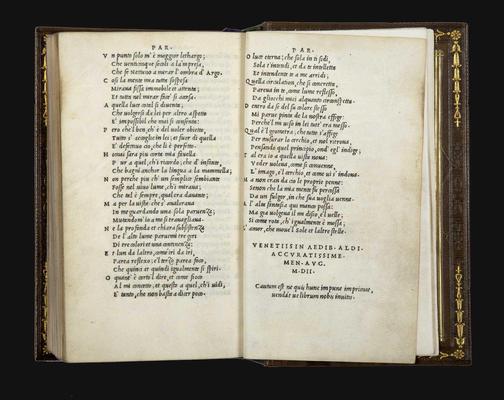 PAR.
V n punto solo m'è maggior lethargo;
Che uenticinque secoli a la'mpresa,
Che fe Nettuno a mirar l'ombra d'Argo.
C osi la mente mia tutta sospesa
Miraua fissa immobile et attenta;
Et tutta nel mirar faciesi accesa.
A quella luce cotal si diuenta;
Che uolgersi da lei per altro aspetto
E' impossibil che mai si consenta:
P ero che'l ben, ch'è del uoler obietto,
Tutto s'accoglie in lei; et fuor di quella
E' defettiuo cio, che li è perfetto.
H omai sera piu corta mia fauella
Pur a quel, ch'i ricordo; che d'infante,
Che bagni anchor la lingua a la mammella.
N on perche piu ch'un semplice sembiante
Fosse nel uiuo lume, ch'i miraua;
Che tal è sempre, qual era dauante;
M a per la uista che s'aualoraua
In me guardando una sola paruenza;
Mutandom'io a me si trauagliaua.
N e la profonda et chiara subsistenza
De l'alto lume paruemi tre giri
Di tre colori et una continenza:
E t l'un da l'altro, come iri da iri,
Parea reflexo; e'l terzo parea foco,
Che quinci et quindi igualmente si spiri.
O quanto è corto'l dire, et come fioco
Al mio concetto, et questo a quel, ch'i uidi,
E' tanto, che non basta a dicer poco.
PAR.
O luce eterna; che sola in ti sedi,
Sola t'intendi, et da te intelletta
Et intendente te a me arridi;
Q uella circulation, che si concetta
Pareua in te, come lume reflesso,
Da gliocchi miei alquanto circonspetta
D entro da se del suo colore stesso
Mi parue pinta de la nostra effige:
Perche'l mi uiso in lei tutt'era messo.
Q ual è'l geometra; che tutto s'affige
Per misurar lo cerchio, et non ritroua,
Pensando quel principio, ond'egl' indige;
T al era io a quella uista noua:
Veder uoleua, come si conuenne,
L'imago, al cerchio, et come ui s'indoua:
M a non eran da cio le proprie penne:
Senon che la mia mente fu percossa
Da un fulgor, in che sua uoglia uenne.
A l'alta fantasia qui manco possa:
Ma gia uolgeua il mi disio, e'l uelle;
Si come rota, ch'igualmente è mossa;
L'amor, che moue'l Sole et l'altre stelle.
VENETIIS IN AEDIB. ALDI.
ACCVRATISSIME
MEN. AVG.
M.DII.
Cautum est ne quis hunc impune imprimat,
uendat ue librum nobis inuitis.